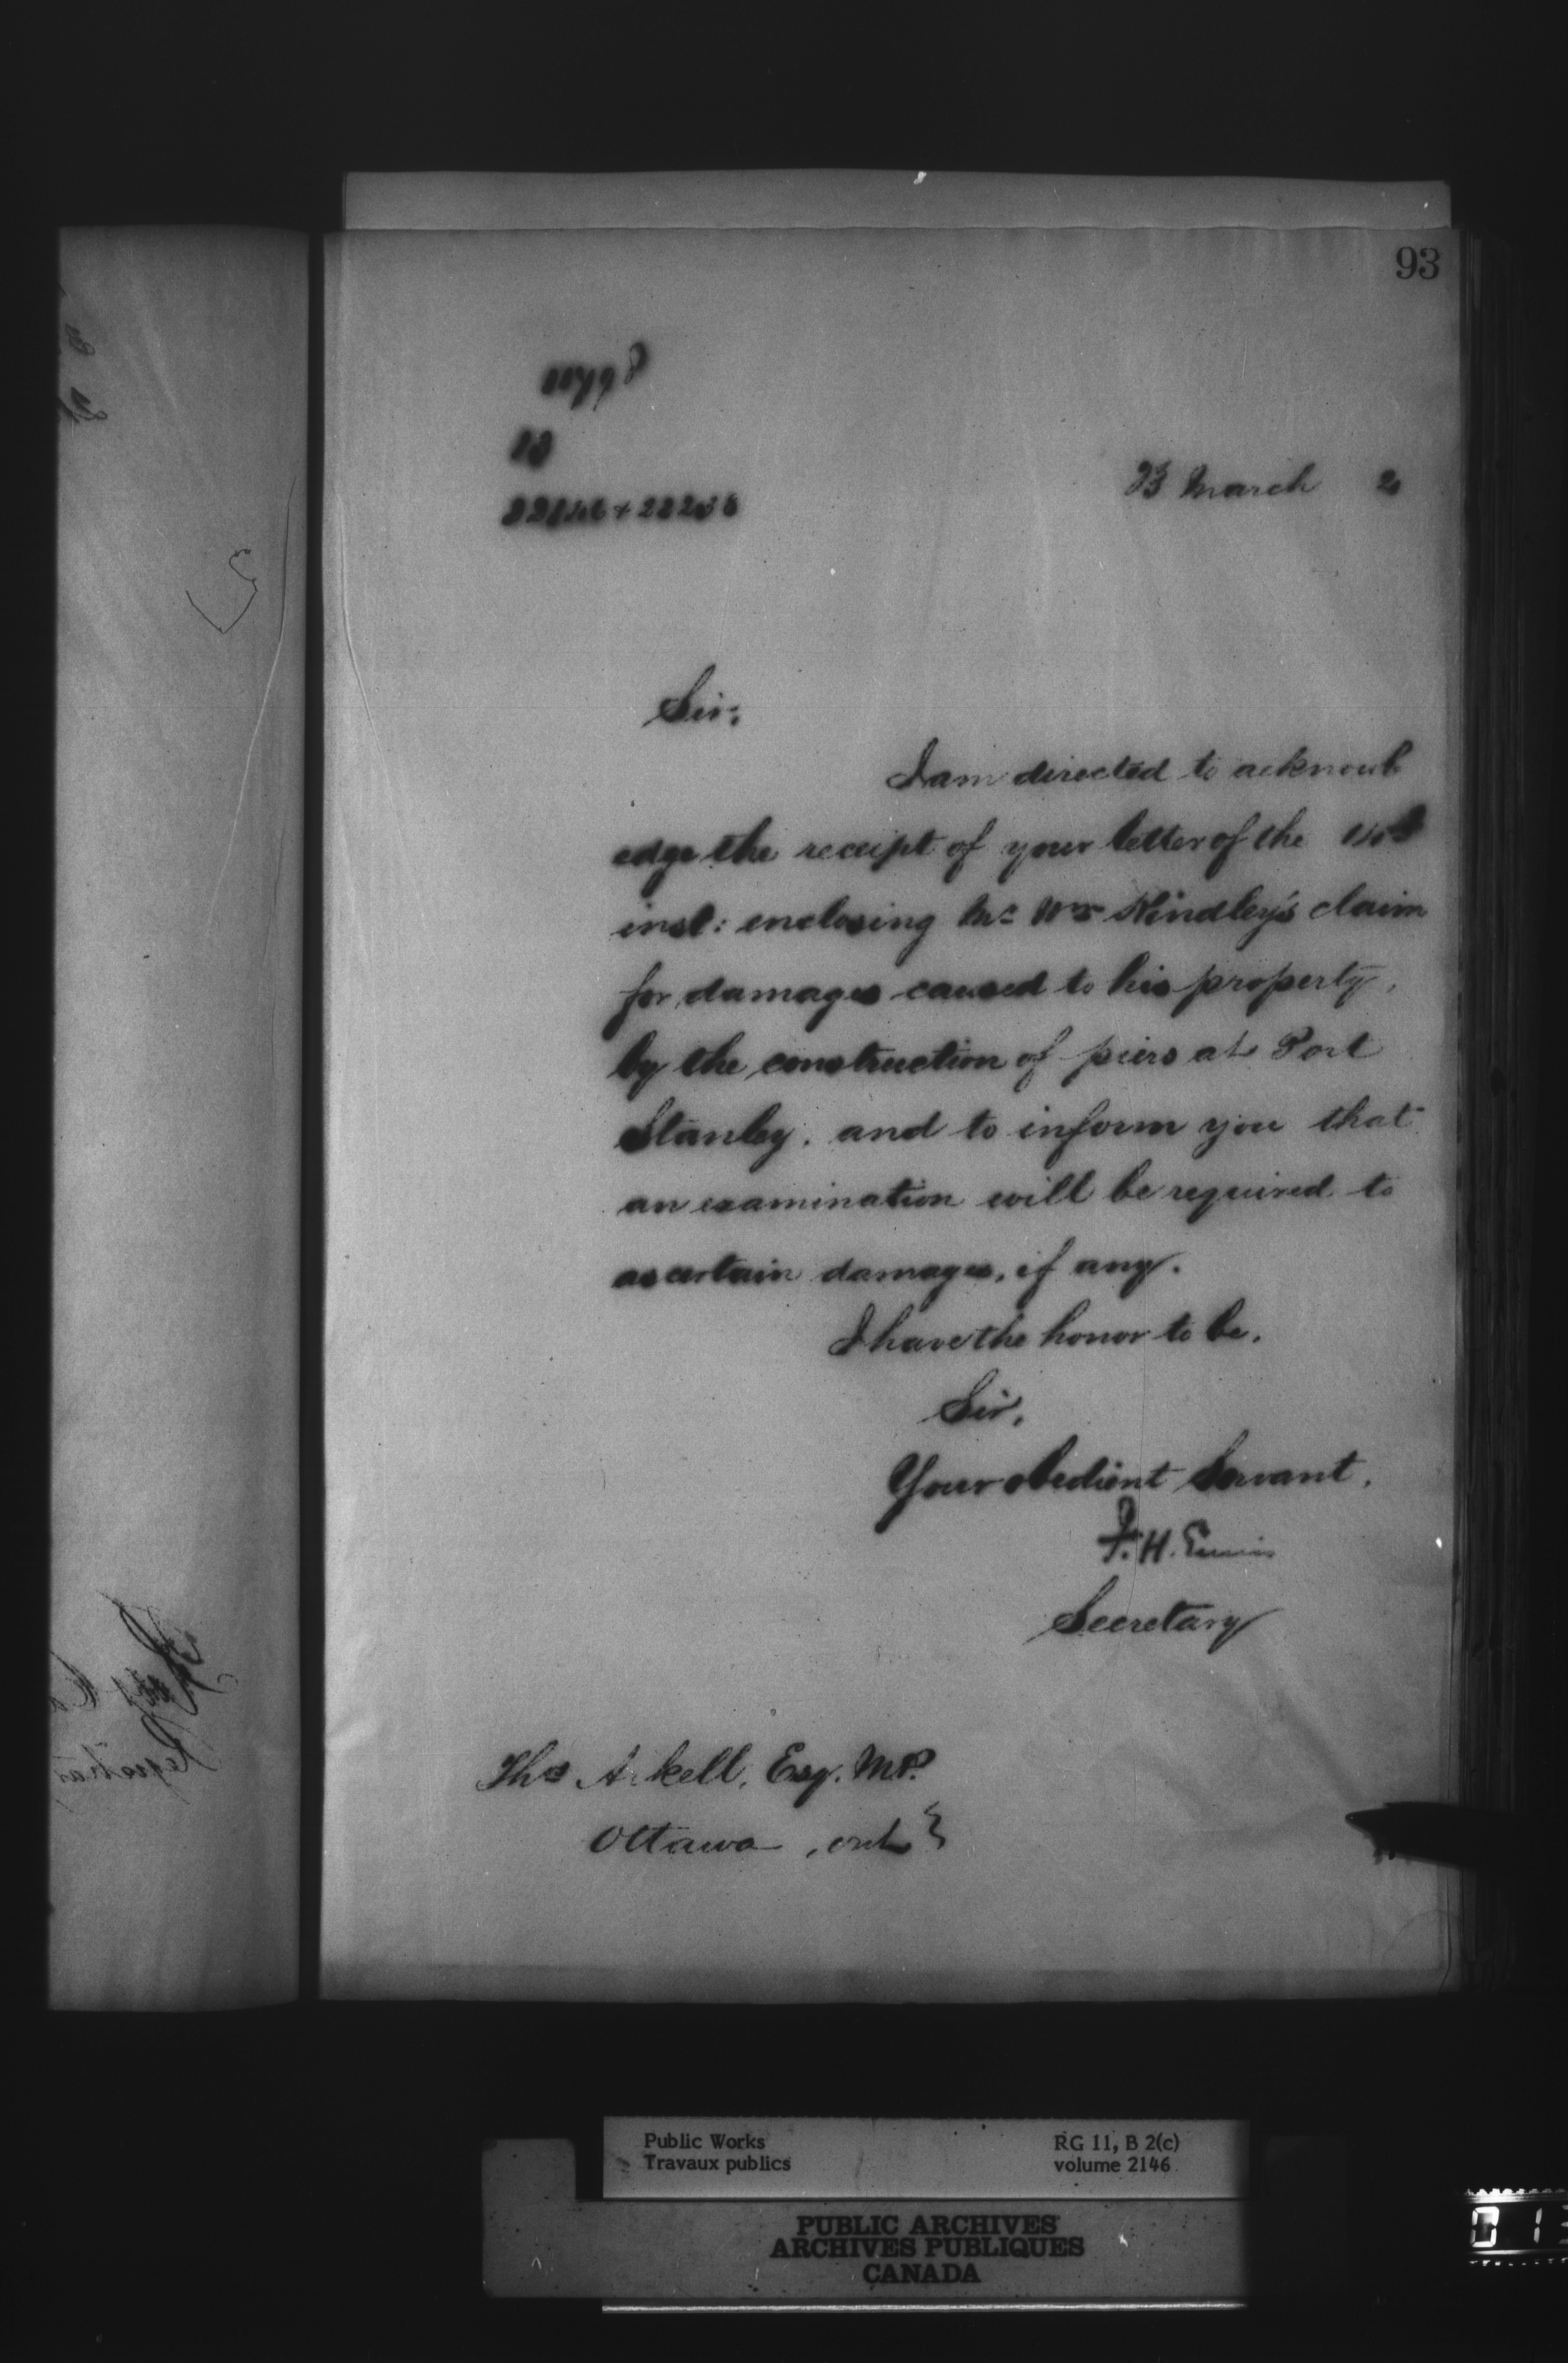 93
23 March 2
Sir,
I am directed to acknowl
edge the receipt of your letter of the
inst: enclosing Mr Wm Hindley's claim
for damages caused to his property,
by the construction of piers at Port
Stanley, and to inform you that
an examination will be required to
ascertain damages, if any.
I have the honor to be,
Sir,
Your obedient Servant,
F. H. Ennis
Secretary
Thos Arkell, Esq. M.P.
Ottawa, Ont
Public Works
Travaux publics
RG 11, B 2(c)
volume 2146
PUBLIC ARCHIVES
ARCHIVES PUBLIQUES
CANADA